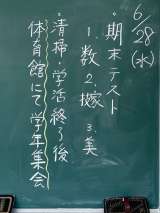 6/28(水)
・期末テスト
1.数 2.技家 3.美
・清掃・学活終了後
体育館にて学年集会